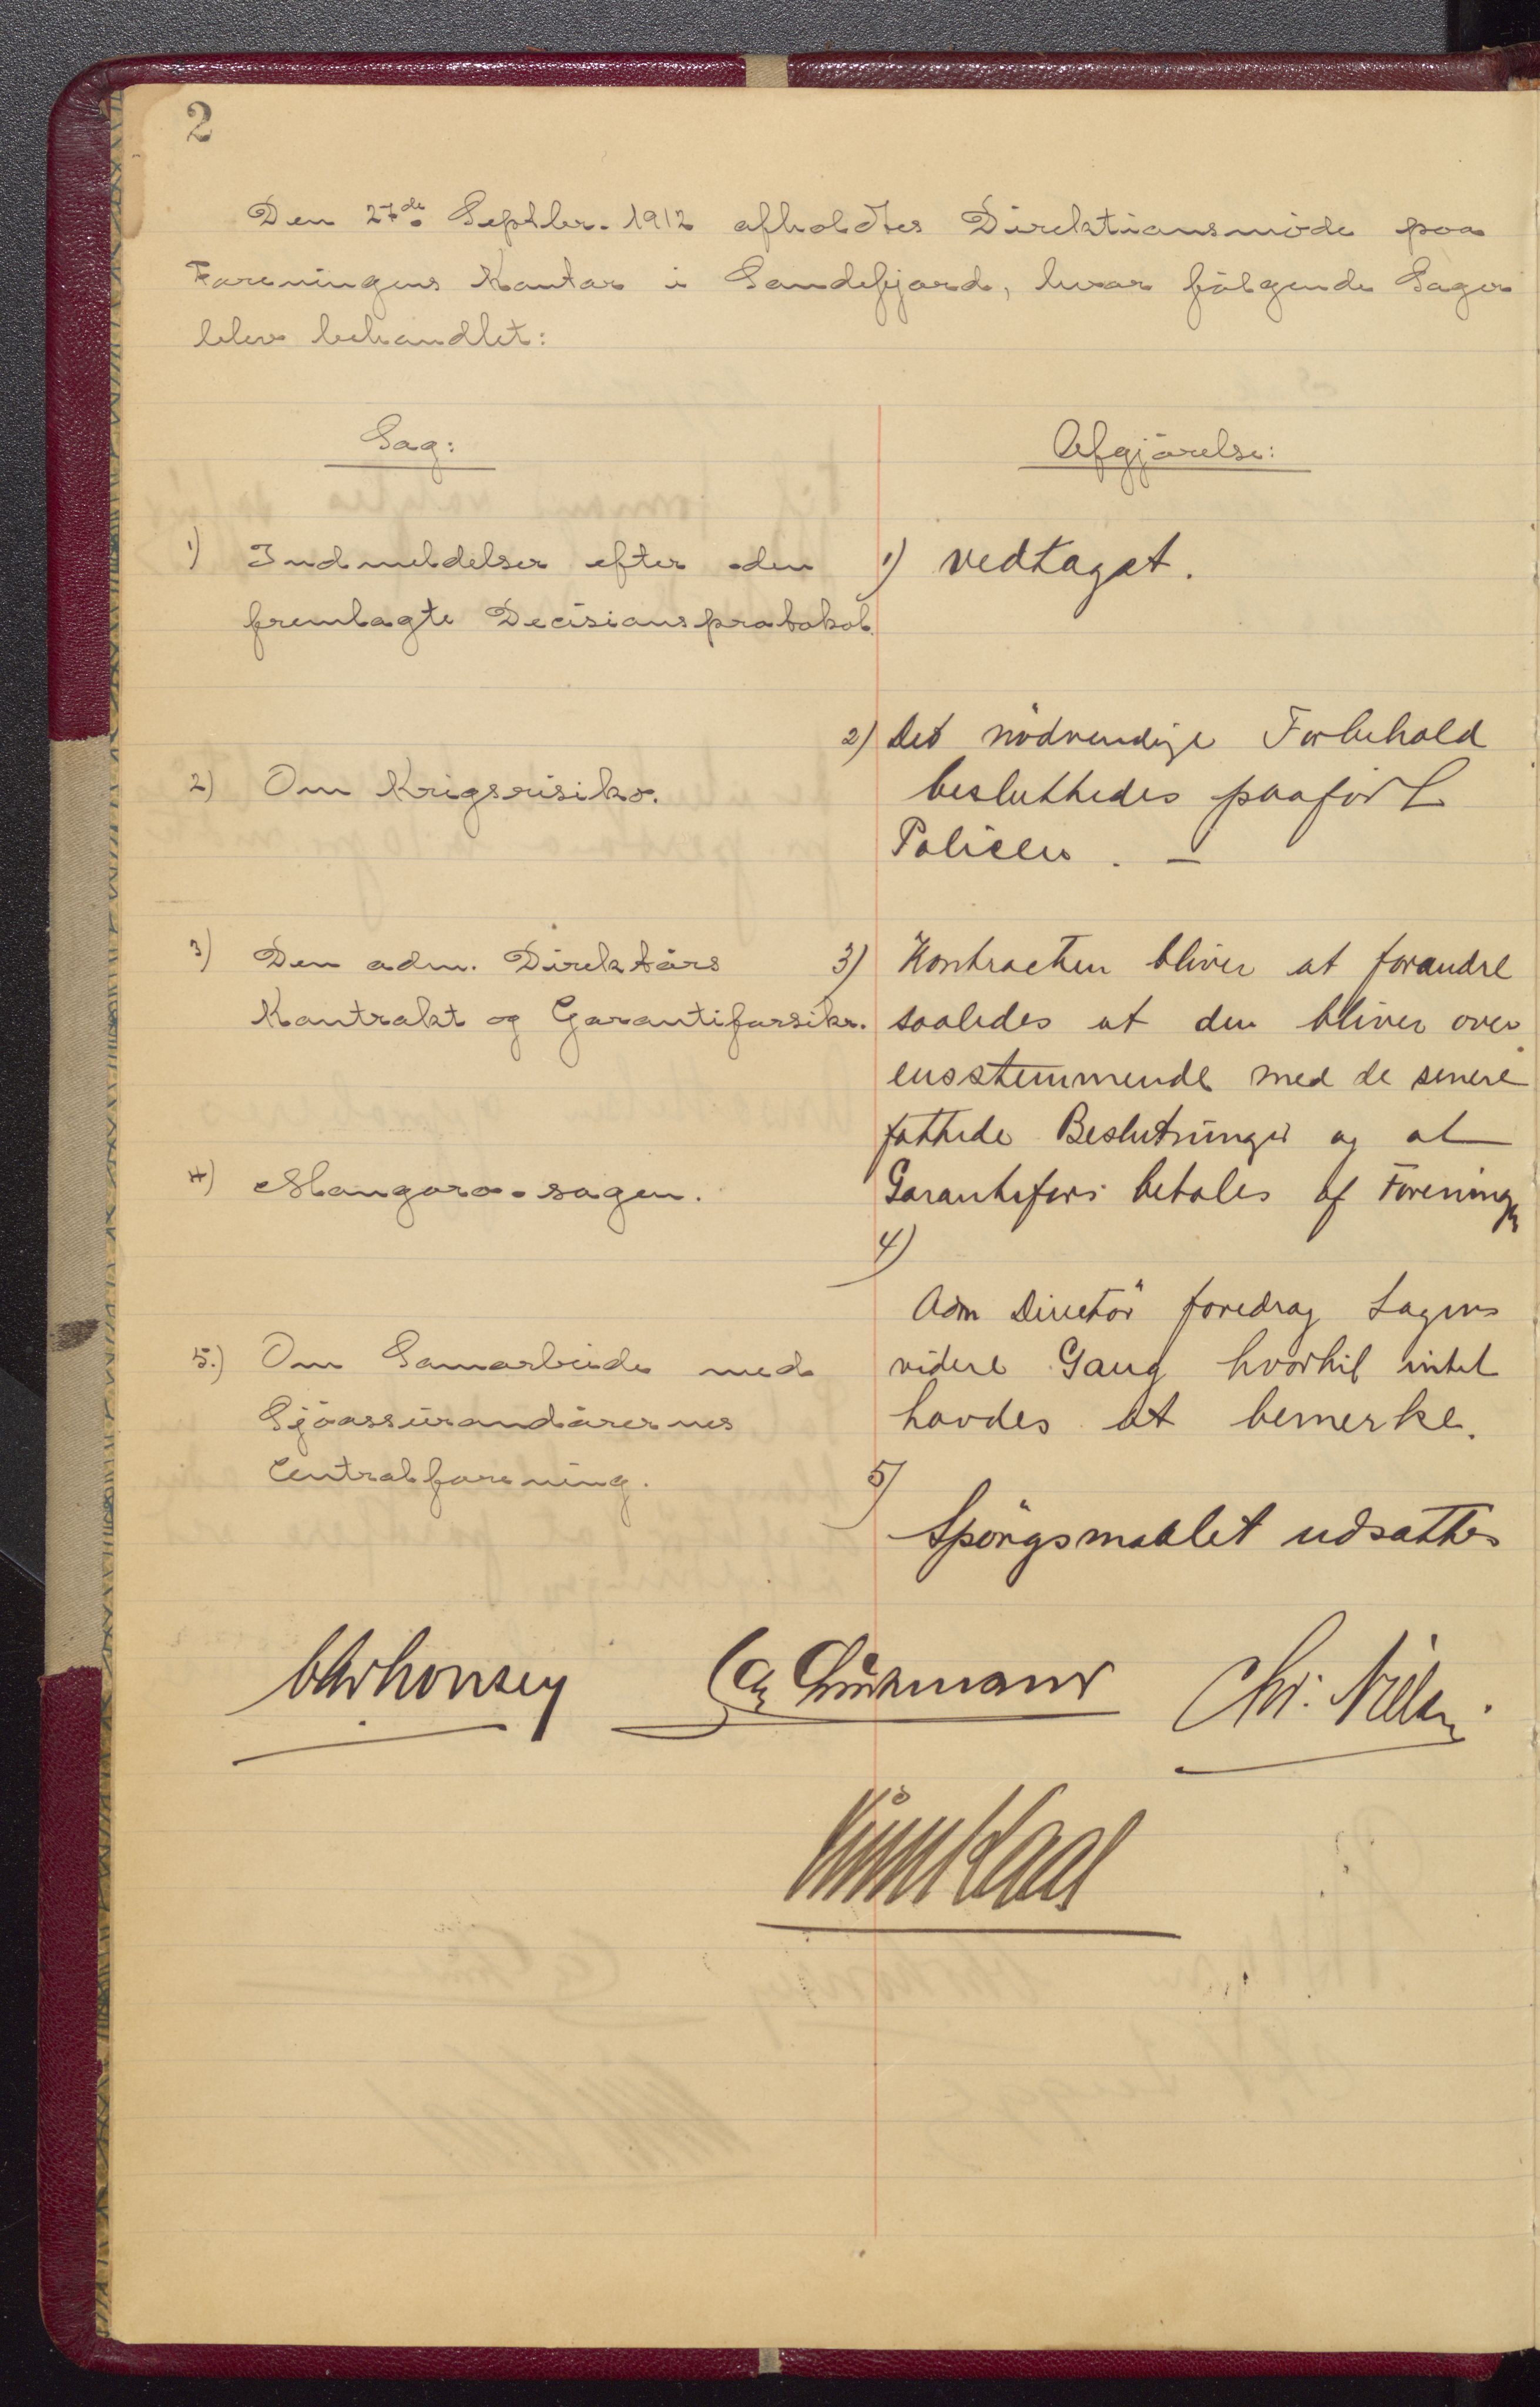 2
Den 27de Septbr. 1912 afholdtes Direktionsmöde paa
Foreningens Kontor i Sandefjord, hvor fölgende Sager
blev behandlet:
Sag:
1) Indmeldelser efter den
fremlagte Decisionsprotokol.
2) Om Krigsrisiko.
3) Den adm. Direktörs
Kontrakt og Garantiforsikr.
4) Mangara-sagen.
5.) Om Samarbeide med
Sjöassürandörernes
Centralforening.
Afgjörelse:
1) vedtaget.
2) Det nödvendige Forbehold
besluttedes paafört
Policen. —
3) Kontracten bliver at forandre
saaledes at den bliver over
ensstemmende med de senere
fattede Beslutninger og at
Garantifors. betales af Foreningen
4)
Adm Direktör foredrog Sagens
videre Gang hvortil intet
havdes at bemerke.
5)
Spörgsmaalet udsattes
Chr. Nielsen